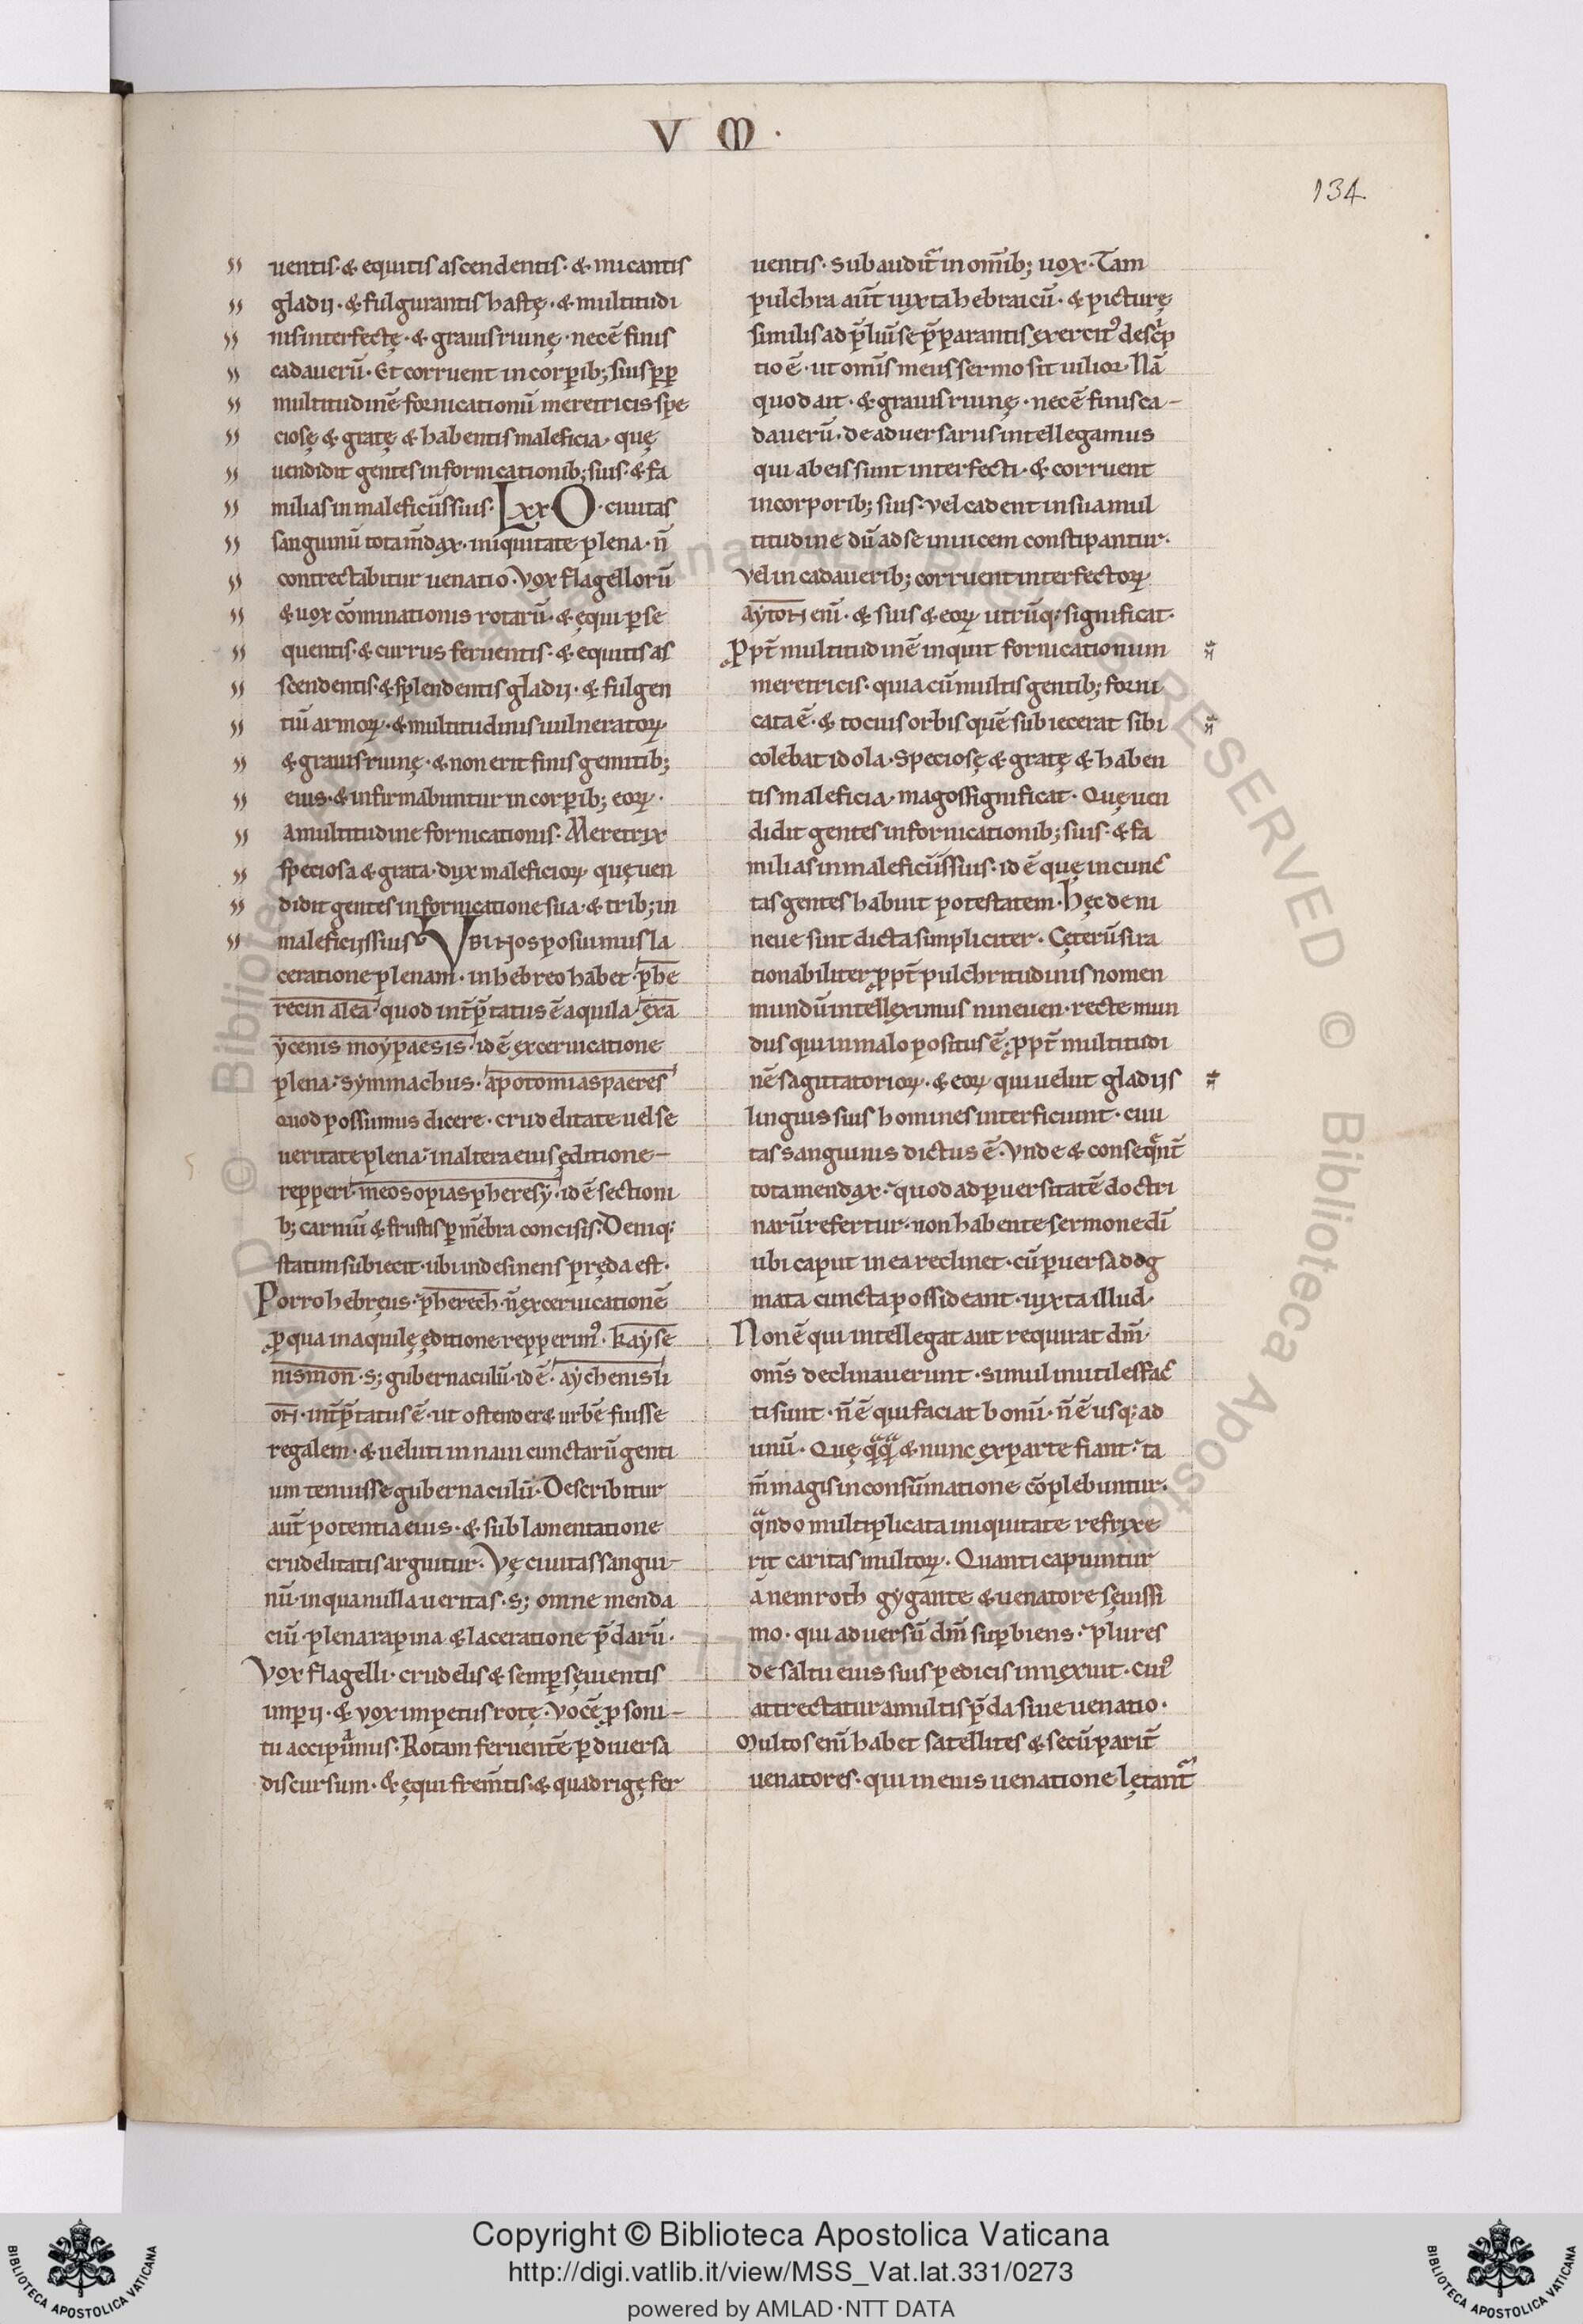 V M ·
134
uentis · & equitis ascendentis · & micantis
gladij · & fulgurantis hastę · & multitudi
nis interfectę · & grauis ruinę · nec ē finis
cadauerū · Et corruent in corꝑib; suis ꝓꝑ
multitudinē fornicationū meretricis spe
ciosę & gratę & habentis maleficia · quę
uendidit gentes in fornicationib; suis · & fa
milias in maleficiis suis · Lxx O · ciuitas
sanguinū tota m̄dax · iniquitate plena · n̄
contrectabitur uenatio · Vox flagellorū
& uox cōminationis rotarū · & ęqui ꝑse
quentis · & currus feruentis · & equitis as
scendentis · & splendentis gladij · & fulgen
tiū armoꝝ · & multitudinis uulneratoꝝ ·
& grauis ruinę · & non erit finis gentib;
eius · & infirmabuntur in corꝑib; eoꝝ ·
A multitudine fornicationis · Meretrix
speciosa & grata · dux maleficioꝝ quę uen
didit gentes in fornicatione sua · & trib; in
maleficijs suis · Vbi nos posuimus la
ceratione plenam · in hebreo habet · phe
recin alea · quod int̄p̄tatus ē aquila · exa
ycenis moypaesis · id ē excernicatione
plena · symmachus · apotomias paeres
quod possumus dicere · crudelitate uel se
ueritate plena · in altera eius ęditione –
repperi · meosopias pheresy · id ē sectioni
b; carniū & frustis ꝑ m̄ebra concisis · Deniq;
statim subiecit · ubi indesinens pręda est ·
Porro hebręus · pherech · n̄ excernicationē
ꝓ qua in aquilę ęditione repperimꝰ · kayse
nismon · s; gubernaculū · id ē · aychenisti
on · int̄p̄tatus ē · ut ostender& urbē fuisse
regalem · & ueluti in naui cunctarū genti
um tenuisse gubernaculū · Describitur
aut̄ potentia eius · & sub lamentatione
crudelitatis arguitur · Vę ciuitas sangui–
nū · in qua nulla ueritas · s; omne menda
ciū · plena rapina & laceratione p̄darū ·
Vox flagelli · crudelis & semꝑ sęuientis
imꝑij · & vox impetus rotę · Vocē ꝓ soni–
tu accipimus · Rotam feruentē ꝑ diuersa
discursum · & ęqui frem̄tis · & quadrigę fer
uentis · Subaudit᷑ in om̄ib; uox · Tam
pulchra aut̄ iuxta hebraicū · & picturę
similis ad p̄liū se p̄parantis exercitꝰ desc̄p
tio ē · ut om̄is meus sermo sit uilior · Nā
quod ait · & grauis ruinę · nec ē finis ca–
dauerū · de aduersariis intellegamus
qui ab eis sunt interfecti · & corruent
in corporib; suis · vel cadent in sua mul
titudine dū ad se inuicem constipantur ·
Vel in cadauerib; corruent interfectoꝝ
ayton eni̅ · & suis & eoꝝ utrūq; significat ·
Ꝓpt̄ multitudinē inquit fornicationum
meretricis · quia cū multis gentib; forni
cata ē · & tocius orbis quē subiecerat sibi
colebat idola · Speciosę & gratę & haben
tis maleficia · magos significat · Quę uen
didit gentes in fornicationib; suis · & fa
milias in maleficiis suis · id ē quę in cunc̄
tas gentes habuit potestatem · Hęc de ni
neue sint dicta simpliciter · Cęterū si ra
tionabiliter ꝓpt̄ pulchritudinis nomen
mundū intelleximus nineuen · recte mun
dus qui in malo positus ē · ꝓpt̄ multitudi
nē sagittatorioꝝ · & eoꝝ qui uelut gladijs
linguis suis homines interficiunt · ciui
tas sanguinis dictus ē · Vnde & conseq̄nt̄
tota mendax · quod ad ꝑuersitatē doctri
narū refertur · non habente sermone dī
ubi caput in ea reclinet · cū ꝑuersa dog
mata cuncta possideant · iuxta illud ·
Non ē qui intellegat aut requirat dm̄ ·
om̄s declinauerunt · simul inutiles fac̄
ti sunt · n̄ ē qui faciat bonū · n̄ ē usq; ad
unū · Quę qͣqͣ & nunc ex parte fiant · ta
m̄ magis in consūmatione cōplebuntur ·
qͣndo multiplicata iniquitate refrixe
rit caritas multoꝝ · Quanti capiuntur
a nemroth gygante & uenatore sęuissi
mo · qui aduersū dm̄ suꝑbiens · plures
de saltu eius suis pedicis innexuit · cuiꝰ
attrectatur a multis p̄da siue uenatio ·
Multos eni̅ habet satellites & secū parit̄
uenatores · qui in eius uenatione lętant᷑
Copyright © Biblioteca Apostolica Vaticana
http://digi.vatlib.it/view/MSS_Vat.lat.331/0273
powered by AMLAD·NTT DATA